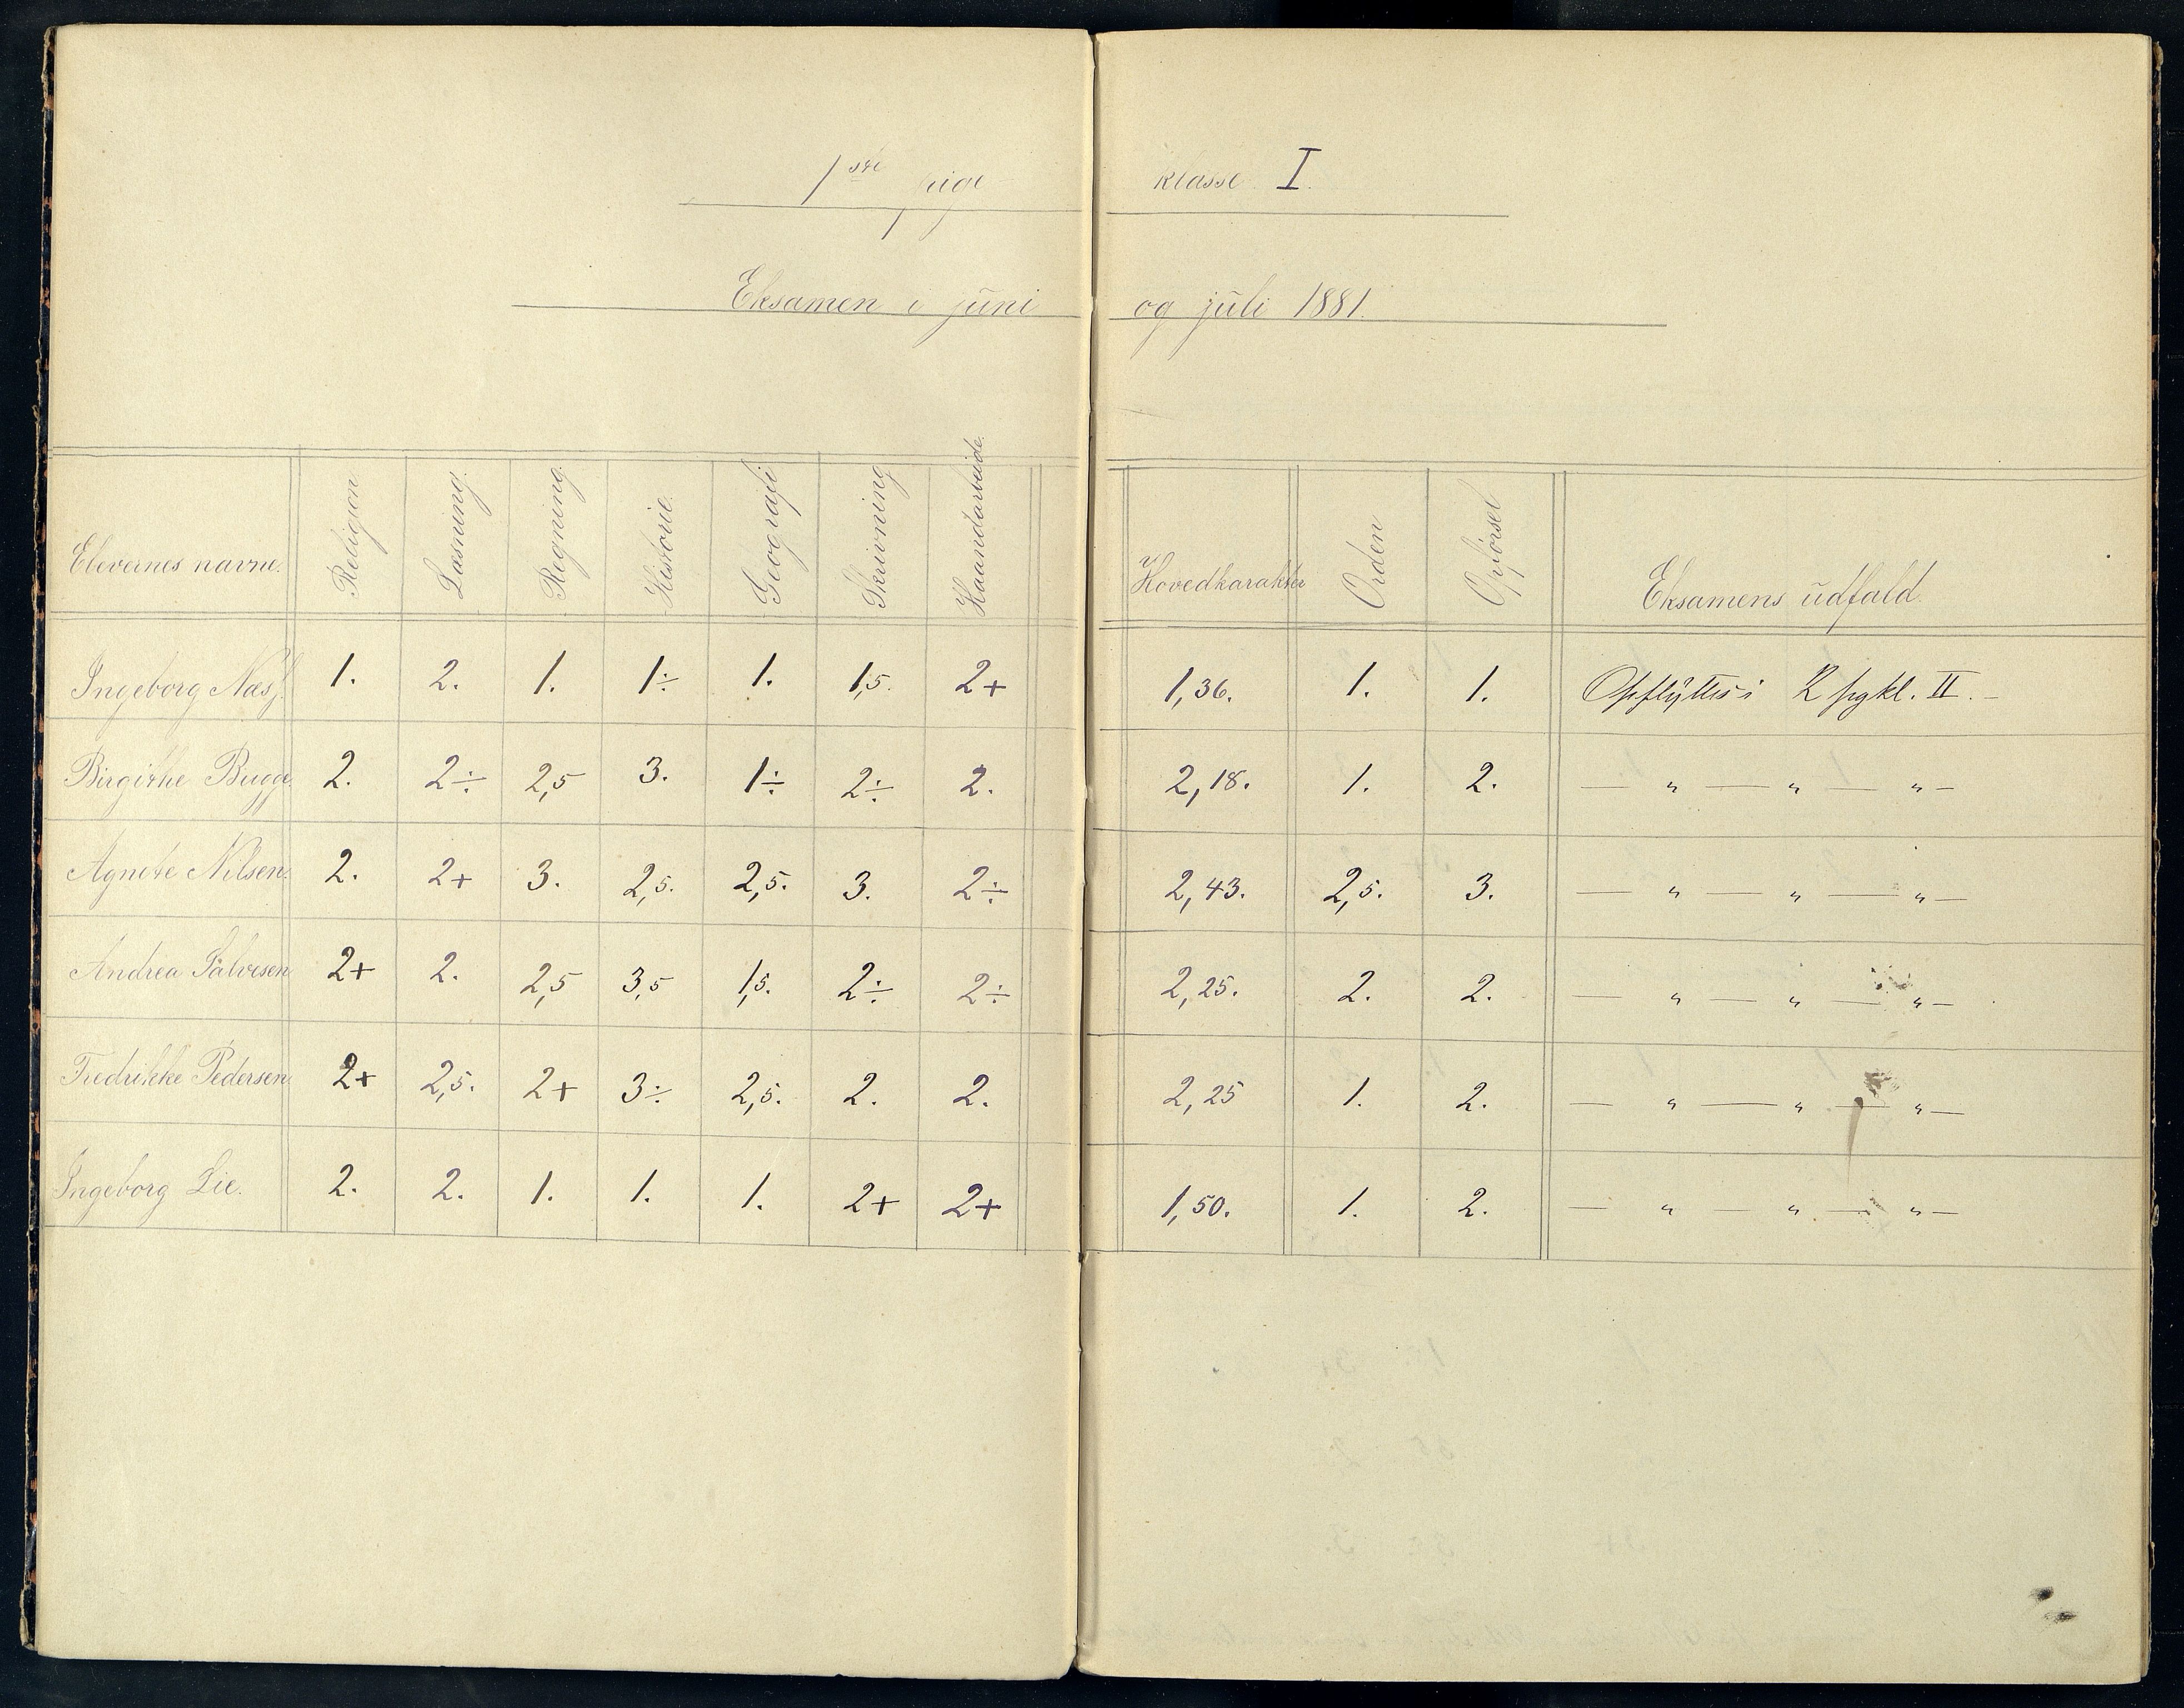 1ste pige klasse I.
Eksamen i juni og juli 1881.
Elevernes navne. Religion Læsning. Regning. Historie. Geografi Skrivning Haandarbeide. Hovedkarakter Orden Opførsel Eksamens udfald.
Ingeborg Næss. 1. 2. 1. 1÷ 1. 1,5. 2+ 1,36. 1. 1. Opflyttes i 2 pgkl. II. –
Birgithe Bugge. 2. 2÷ 2,5 3. 1÷ 2÷ 2. 2,18. 1. 2. — " — " — " —
Agnete Nilsen. 2. 2+ 3. 2,5. 2,5. 3. 2÷ 2,43. 2,5. 3. — " — " — " —
Andrea Salvesen 2+ 2. 2,5 3,5 1,5. 2÷ 2÷ 2,25. 2. 2. — " — " — " —
Fredrikke Pedersen. 2+ 2,5. 2+ 3÷ 2,5. 2. 2. 2,25 1. 2. — " — " — " —
Ingeborg Lie. 2. 2. 1. 1. 1. 2+ 2+ 1,50. 1. 2. — " — " — " —